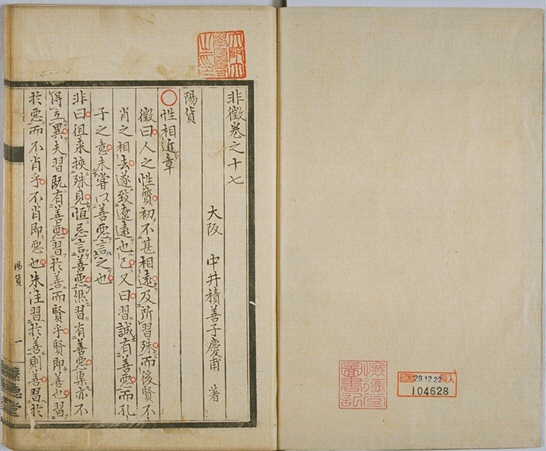 非徵卷之十七
大阪 中井積善子慶甫 著
陽貨
○性相近章
徵曰人之性質初不甚相遠及所習殊而後賢不
肖之相去遂致遼遠也已又曰習誠有善惡而孔
子之意未嘗以善惡言之也
非曰徂來挾殊見恒忌言善惡然習有善惡渠亦不
得立異夫習既有善惡習於善而賢乎賢即善也習
於惡而不肖乎不肖即惡也朱注習於善則善習於
陽貨
一
29.12.22
104628